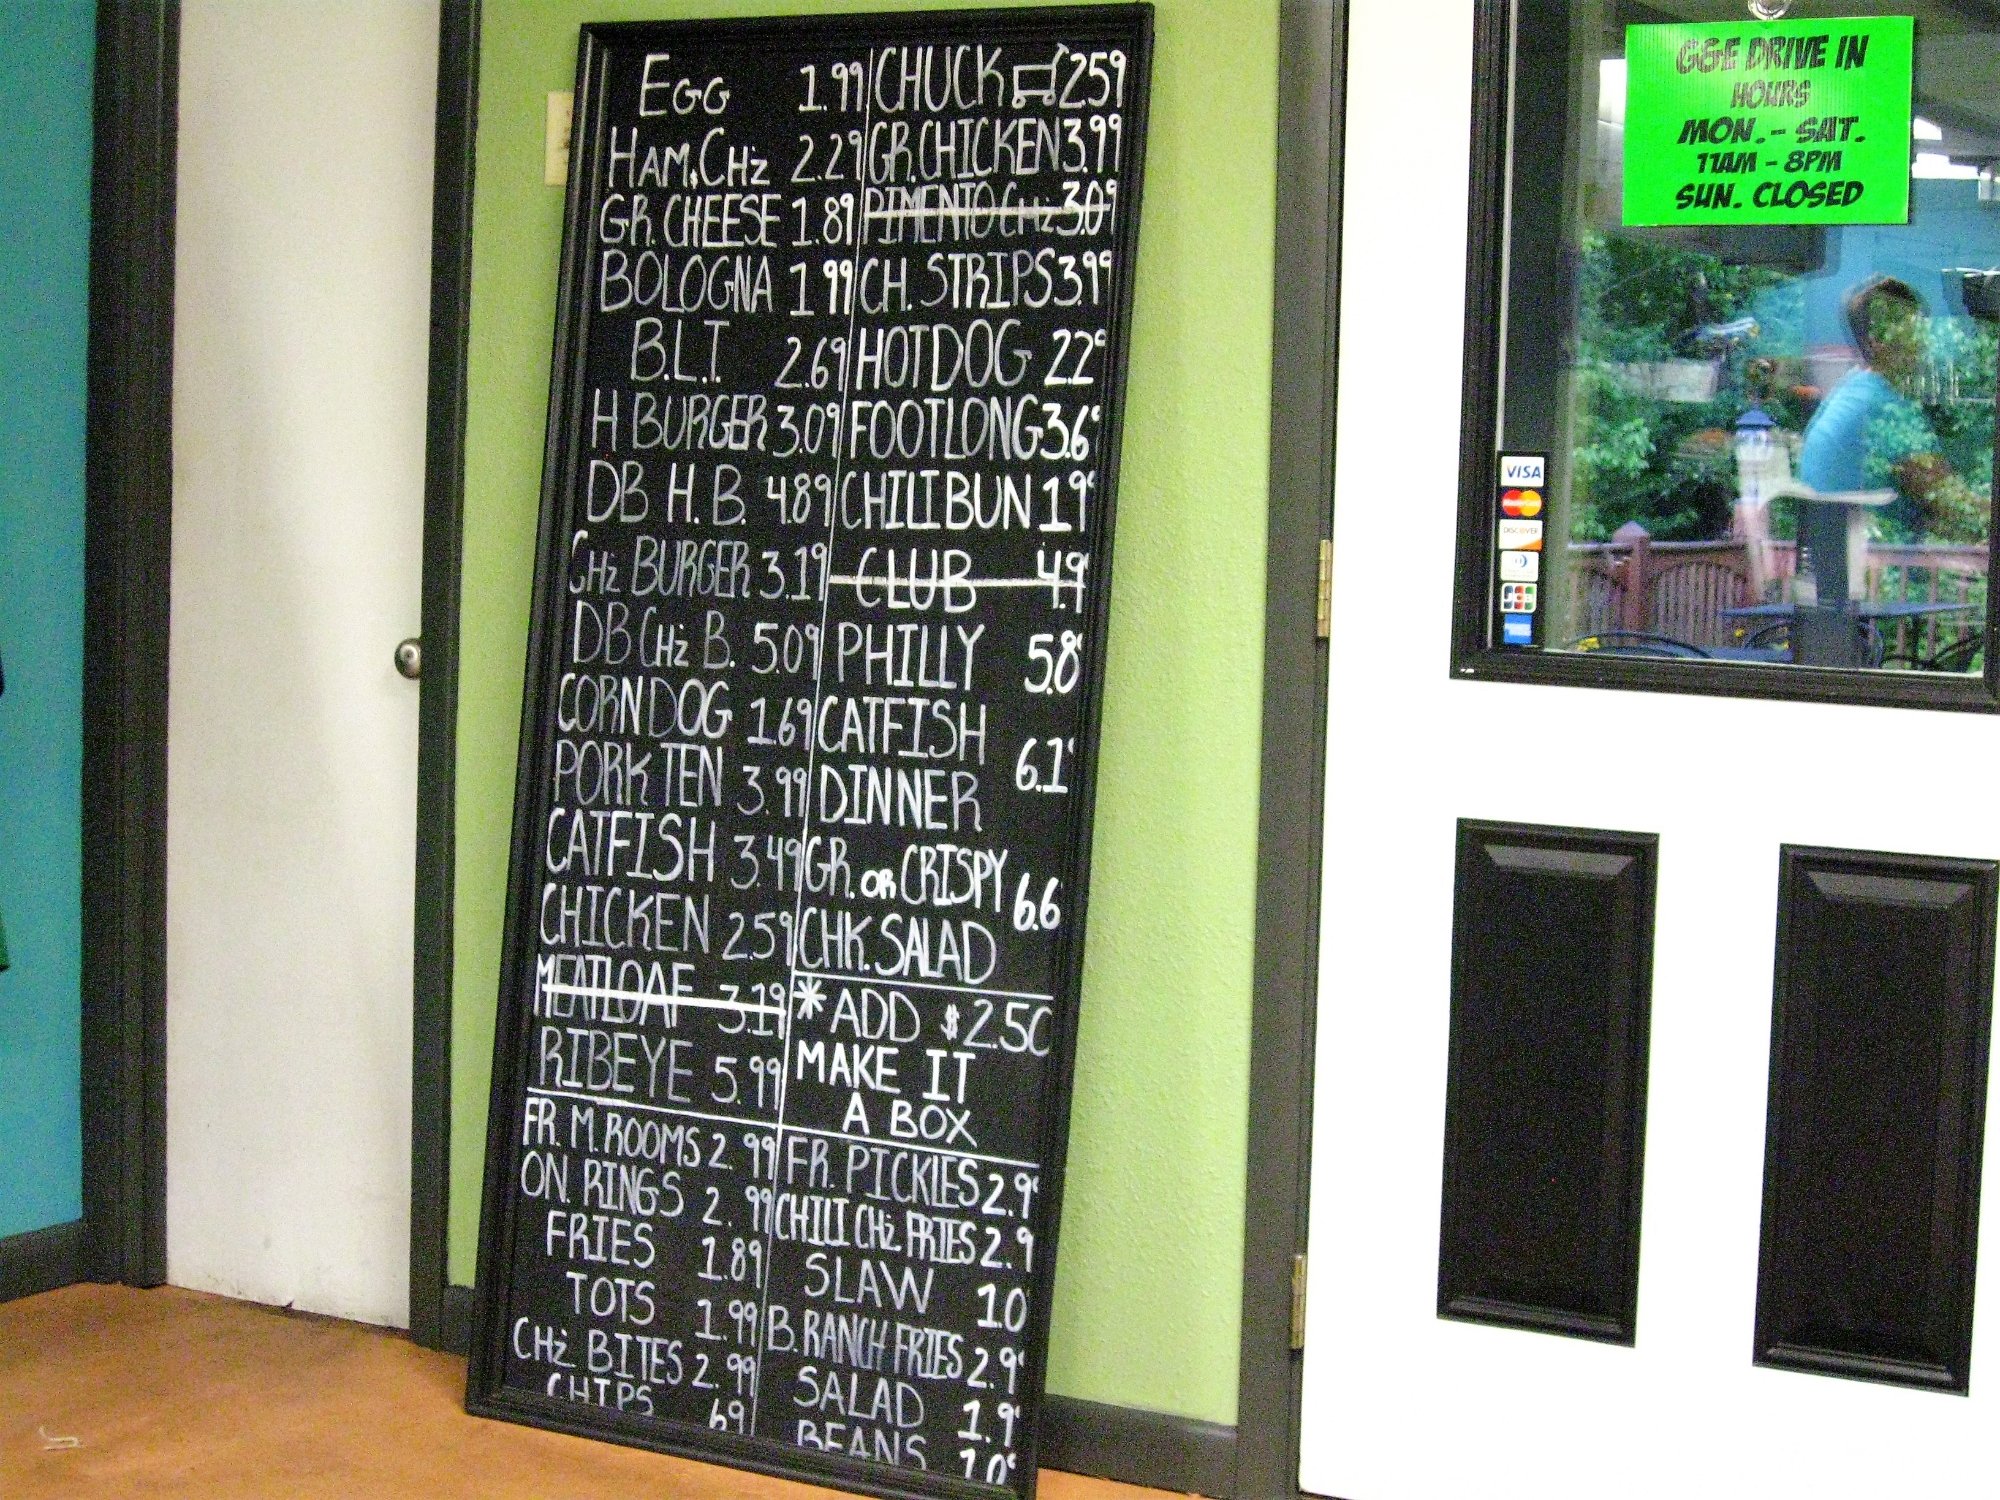 EGG 1.99
HAM & CHz 2.29
GR. CHEESE 1.89
BOLOGNA 1.99
B.L.T. 2.69
H BURGER 3.09
DB H. B. 4.89
CHz BURGER 3.19
DB CHz B. 5.09
CORN DOG 1.69
PORK TEN 3.99
CATFISH 3.49
CHICKEN 2.59
MEATLOAF 3.19
RIBEYE 5.99
FR. M. ROOMS 2.99
ON. RINGS 2.99
FRIES 1.89
TOTS 1.99
CHz BITES 2.99
CHIPS 69
CHUCK 259
GR. CHICKEN 3.99
PIMENTO CHz 3.09
CH. STRIPS 3.99
HOT DOG 2.2
FOOTLONG 3.6
CHILI BUN 1.9
CLUB 4.9
PHILLY 5.8
CATFISH
DINNER 6.1
GR. OR CRISPY
CHK. SALAD 6.6
* ADD $2.50
MAKE IT
A BOX
FR. PICKLES 2.9
CHILI CHz FRIES 2.9
SLAW 1.0
B. RANCH FRIES 2.9
SALAD 1.9
BEANS 1.0
G&E DRIVE IN
HOURS
MON. - SAT.
11AM - 8PM
SUN. CLOSED
VISA
DISCOVER
JCB